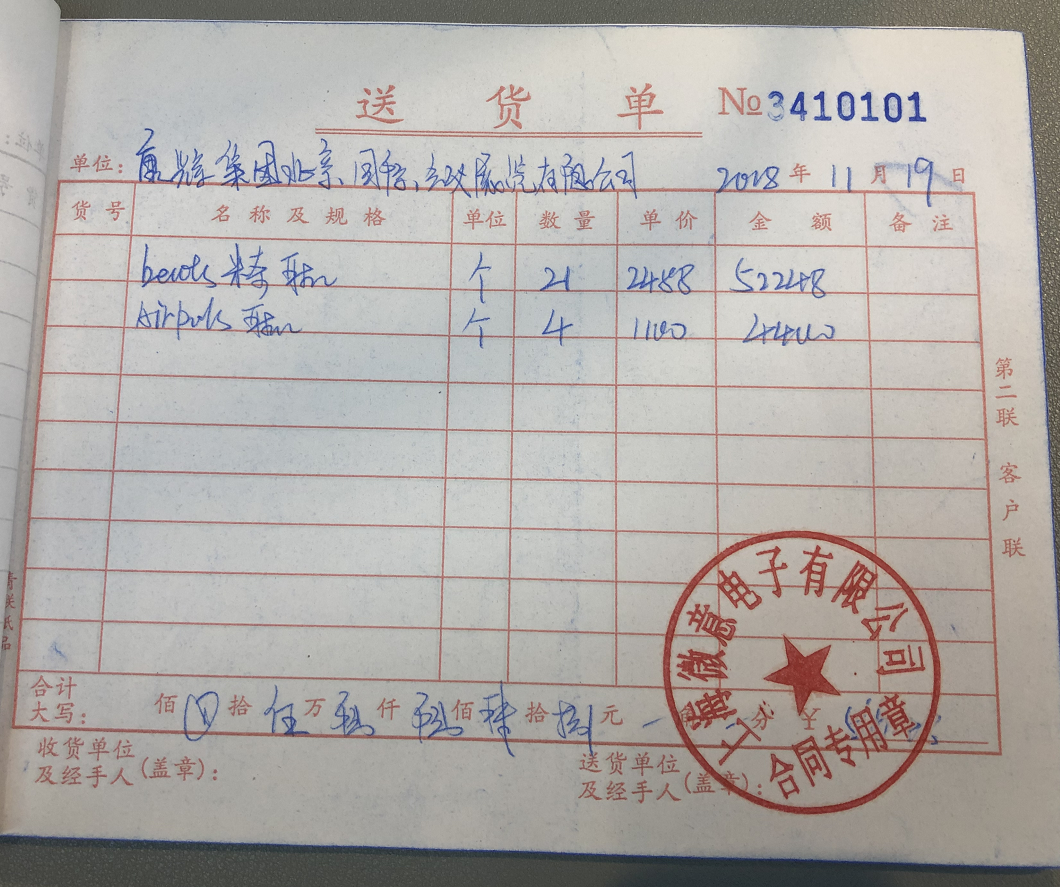 送 货 单 №3410101
单位：康辉集团北京国际会议展览有限公司 2018 年 11 月 19 日
货号 名称及规格 单位 数量 单价 金额 备注
beats 耳机 个 21 2488 52248
Airpods 耳机 个 4 1100 4400
第二联 客户联
合计
大写： 佰 拾 伍 万 仟 佰 拾 捌 元 角 分 ￥
收货单位
及经手人(盖章)：
送货单位
及经手人(盖章)：
上海微意电子有限公司
合同专用章